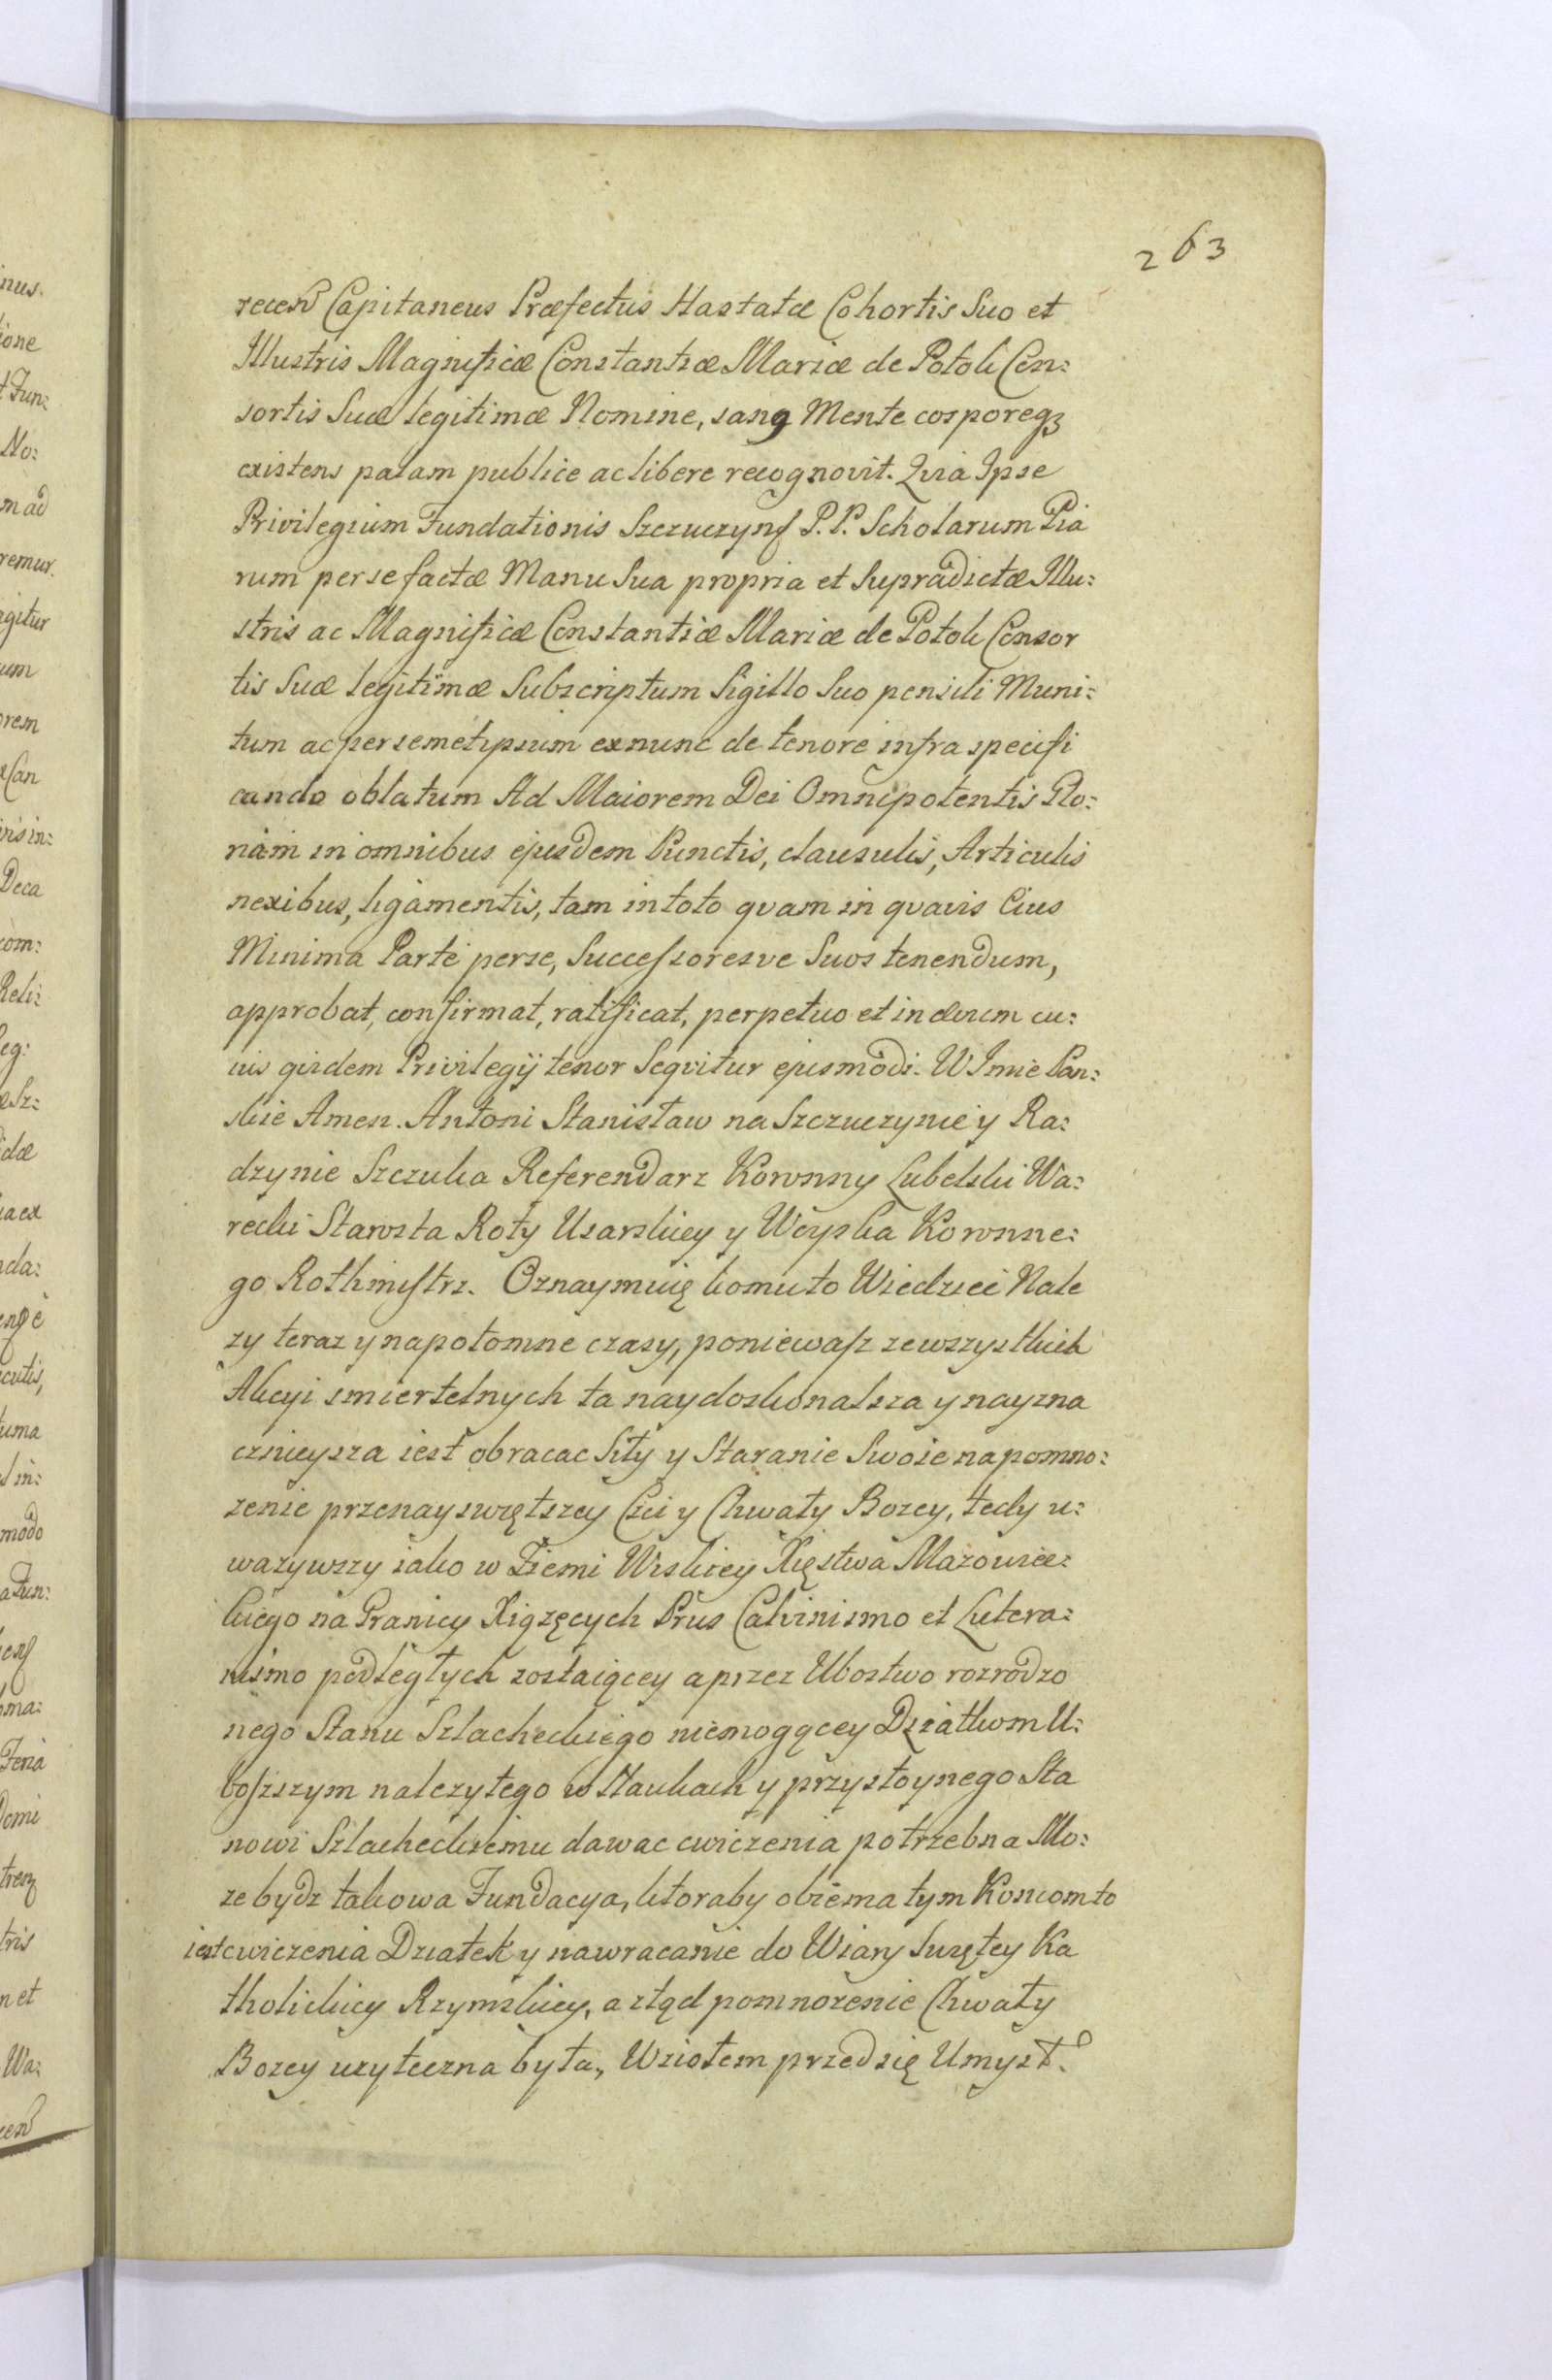 263
recen Capitaneus Præfectus Hastatæ Cohortis Suo et
Illustris Magnificæ Constantiæ Mariæ de Potoki Con:
sortis Suæ legitimæ Nomine, sang Mente corporeqz
existens palam publice ac libere recognovit. Qvia Ipse
Privilegium Fundationis Szczuczyns P.P. Scholarum Pia
rum per se factæ Manu Sua propria et Supradictæ Illu:
stris ac Magnificæ Constantiæ Mariæ de Potoki Consor
tis Suæ legitimæ Subscriptum Sigillo Suo pensili Muni:
tum ac per semetipsum ex nunc de tenore infra specifi
cando oblatum Ad Maiorem Dei Omnipotentis Glo:
riam in omnibus ejusdem Punctis, clausulis, Articulis
nexibus, ligamentis, tam in toto qvam in qvavis Eius
Minima Parte per se, Successoresve Suos tenendum,
approbat, confirmat, ratificat, perpetuo et in ævum cu:
ius qvidem Privilegij tenor Seqvitur ejusmodi. W Imie Pan:
skie Amen. Antoni Stanisław na Szczuczynie y Ra:
dzynie Szczuka Referendarz Koronny Lubelski Wa:
recki Starosta Roty Usarskiey y Woyska Koronne:
go Rothmistrz. Oznaymuię komu to Wiedziec Nale
zy teraz y na potomne czasy, poniewasz ze wszystkich
Akcyi smiertelnych ta naydoskonalsza y nayzna
cznieysza iest obracac Siły y Staranie Swoie na pomno:
zenie przenayswiętszey Czci y Chwały Bozey, tedy u:
wazywszy iako w Ziemi Wiskiey Xięstwa Mazowiec:
kiego na Granicy Xiązęcych Prus Calvinismo et Lutera:
nismo podległych zostaiącey a przez Ubostwo rozrodzo
nego Stanu Szlacheckiego niemogącey Dziatkom U:
bosszym nalezytego w Naukach y przystoynego Sta
nowi Szlacheckiemu dawac cwiczenia potrzebna Mo:
ze bydz takowa Fundacya, ktoraby obiema tym Koncom to
iest cwiczenia Dziatek y nawracanie do Wiary Swiętey Ka
tholickiey Rzymskiey, a ztąd pomnozenie Chwały
Bozey uzyteczna była, Wziołem przedsię Umysł.